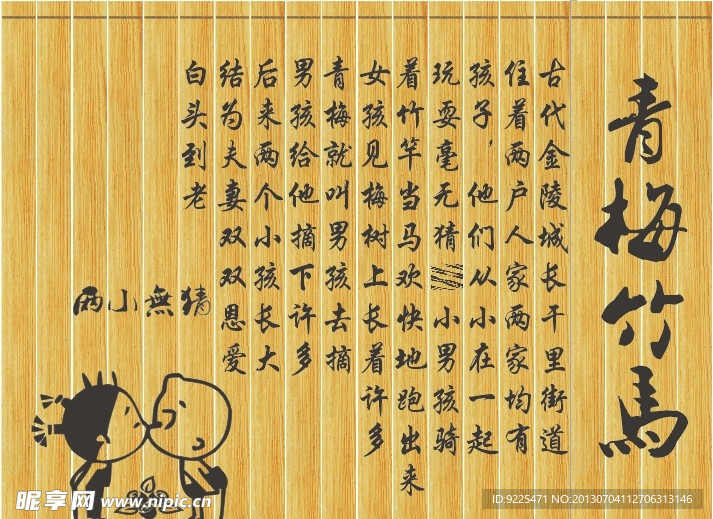 青梅竹馬
古代金陵城长干里街道
住着两户人家两家均有
孩子，他们从小在一起
玩耍毫无猜 小男孩骑
着竹竿当马欢快地跑出来
女孩见梅树上长着许多
青梅就叫男孩去摘
男孩给他摘下许多
后来两个小孩长大
结为夫妻双双恩爱
白头到老
两小無猜
昵享网 www.nipic.cn
ID:9225471 NO:20130704112706313146